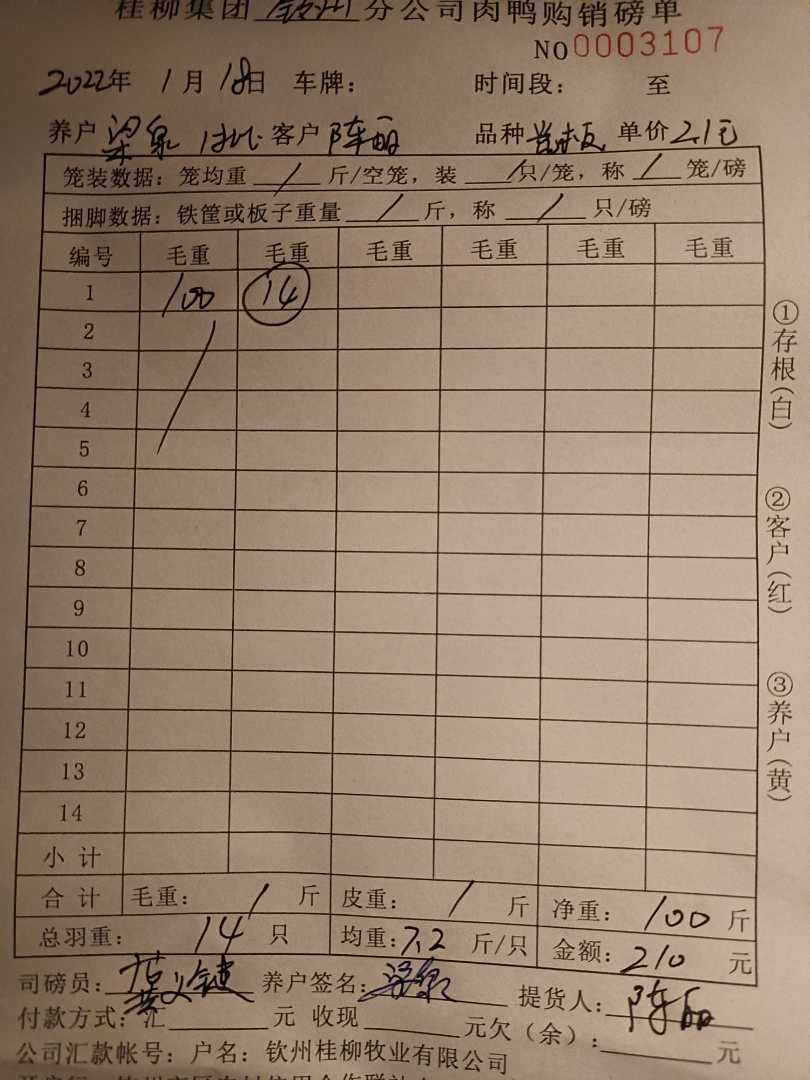 桂柳集团 钦州 分公司肉鸭购销磅单
NO 0003107
2022年 1月18日 车牌： 时间段： 至
养户 梁泉 客户 陈丽 品种 单价 2.1元
笼装数据：笼均重 / 斤/空笼，装 / 只/笼，称 / 笼/磅
捆脚数据：铁筐或板子重量 / 斤，称 / 只/磅
编号 毛重 毛重 毛重 毛重 毛重 毛重
1 100 14
2
3
4
5
6
7
8
9
10
11
12
13
14
小计
合计 毛重： / 斤 皮重： / 斤 净重： 100 斤
总羽重： 14 只 均重：7.2 斤/只 金额：210 元
司磅员： 养户签名：梁泉 提货人：陈丽
付款方式：汇 元 收现 元欠（余）： 元
公司汇款帐号：户名：钦州桂柳牧业有限公司
①存根（白）
②客户（红）
③养户（黄）